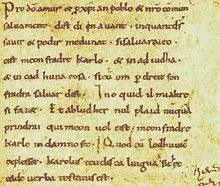 Pro dō amur & p xpian poblo & nr̄o comun
saluament. dist di en auant. inquantds
sauir & podir medunat. sisaluaraieo
cist meon fradre karlo. & in adiudha
& in cad huna cosa. sicū om p dreit son
fradra saluar dist. Ino quid il mialtre
si faret. Et abludher nul plaid nūquā
prindrai qui meon uol cist. meonfradre
karle in damno sit. Quod cū lodhuuic
explesset. karolus teudisca lingua sic
eadē uerba testatus est.